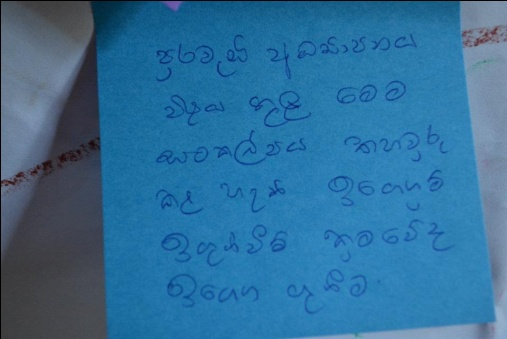 පුරවැසි අධ්‍යාපනය
විෂය තුළ මෙම
සංකල්පය තහවුරු
කළ හැකි ඉගෙනුම්
ඉගැන්වීම් ක්‍රමවේද
ඉගෙන ගැනීම.